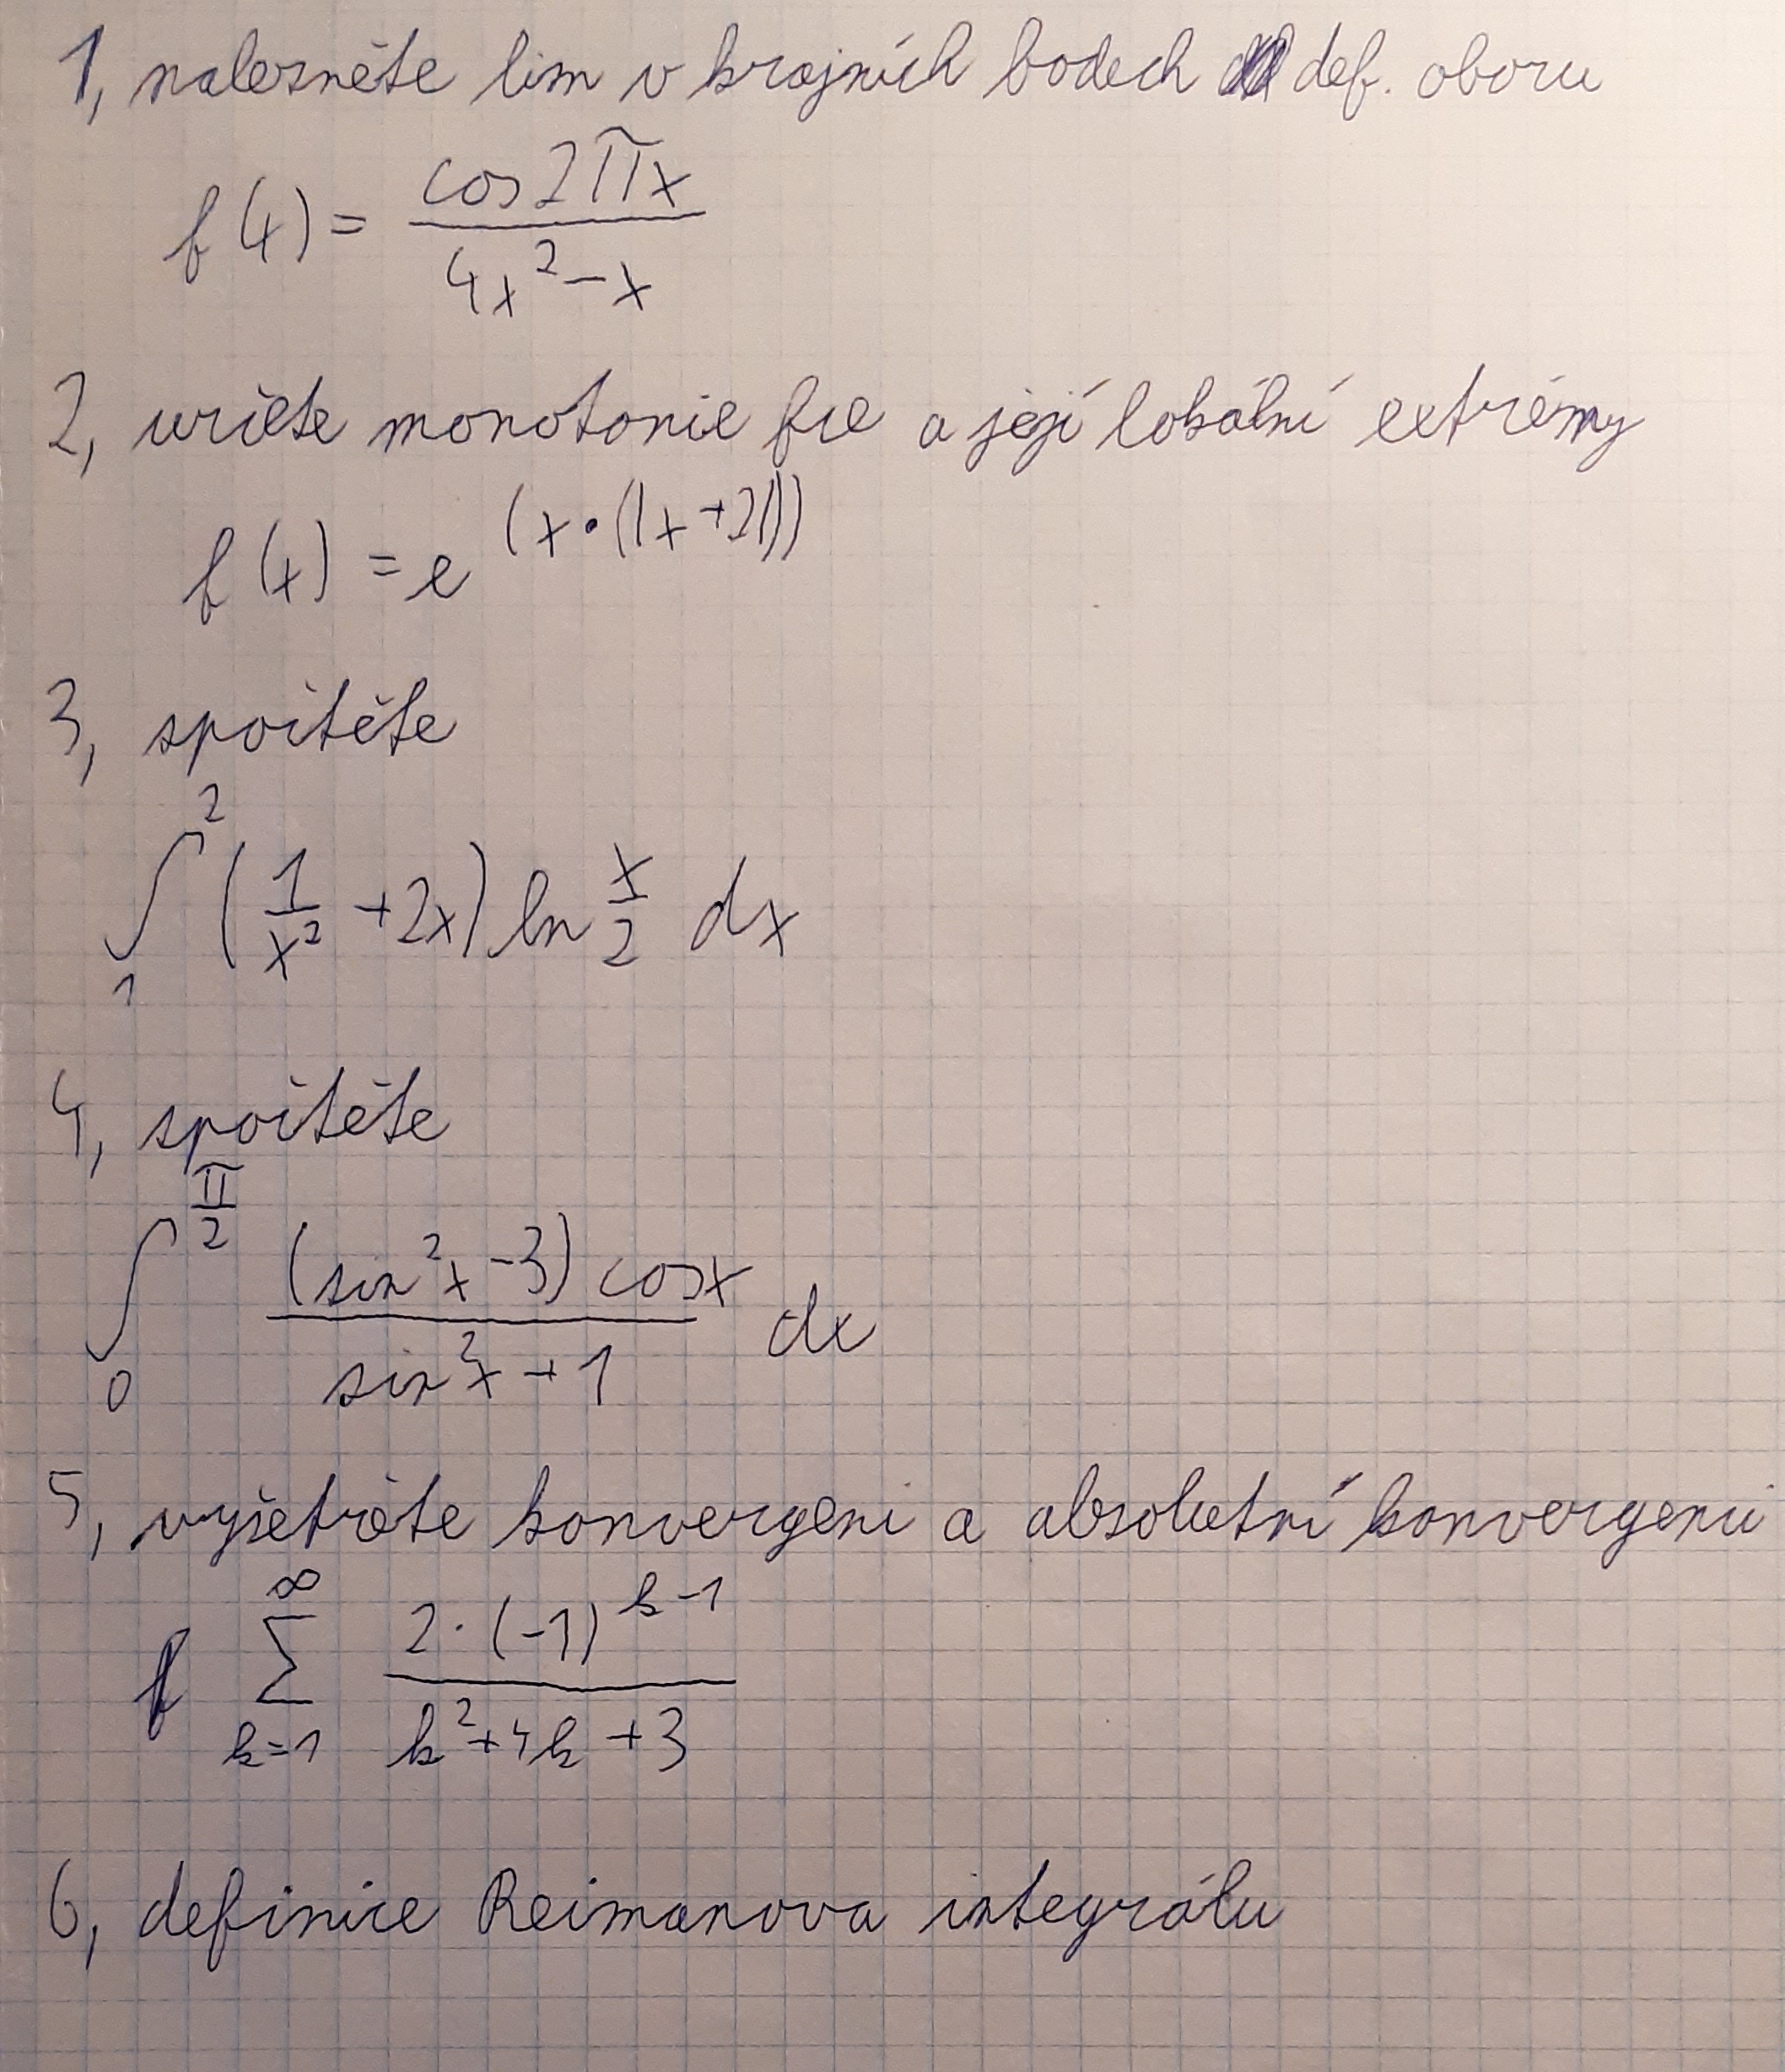 1, nalezněte lim v krajních bodech def. oboru
f(x) = \frac{cos 2πx}{4x² - x}
2, určete monotonie fce a její lokální extrémy
f(x) = e^{(x·(|x+2|))}
3, spočtěte
\int_1^2 (\frac{1}{x²} + 2x) ln \frac{x}{2} dx
4, spočtěte
\int_0^{\frac{π}{2}} \frac{(sin²x - 3) cosx}{sin²x + 1} dx
5, vyšetřete konvergeni a absolutní konvergenci
f \sum_{k=1}^{∞} \frac{2·(-1)^{k-1}}{k² + 4k + 3}
6, definice Reimanova integrálu